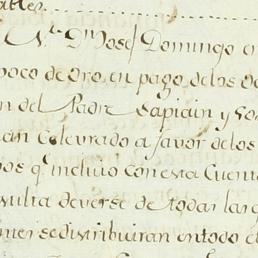 ables
N.r Dn Josef Domingo en
poco de oro, en pago de los de
n del Padre Sapiain y Go
an Colevrado a favor de los
os q.e incluio Con esta Cuenta
sulta deverse de todar las q
nerse distribuiran en todo e